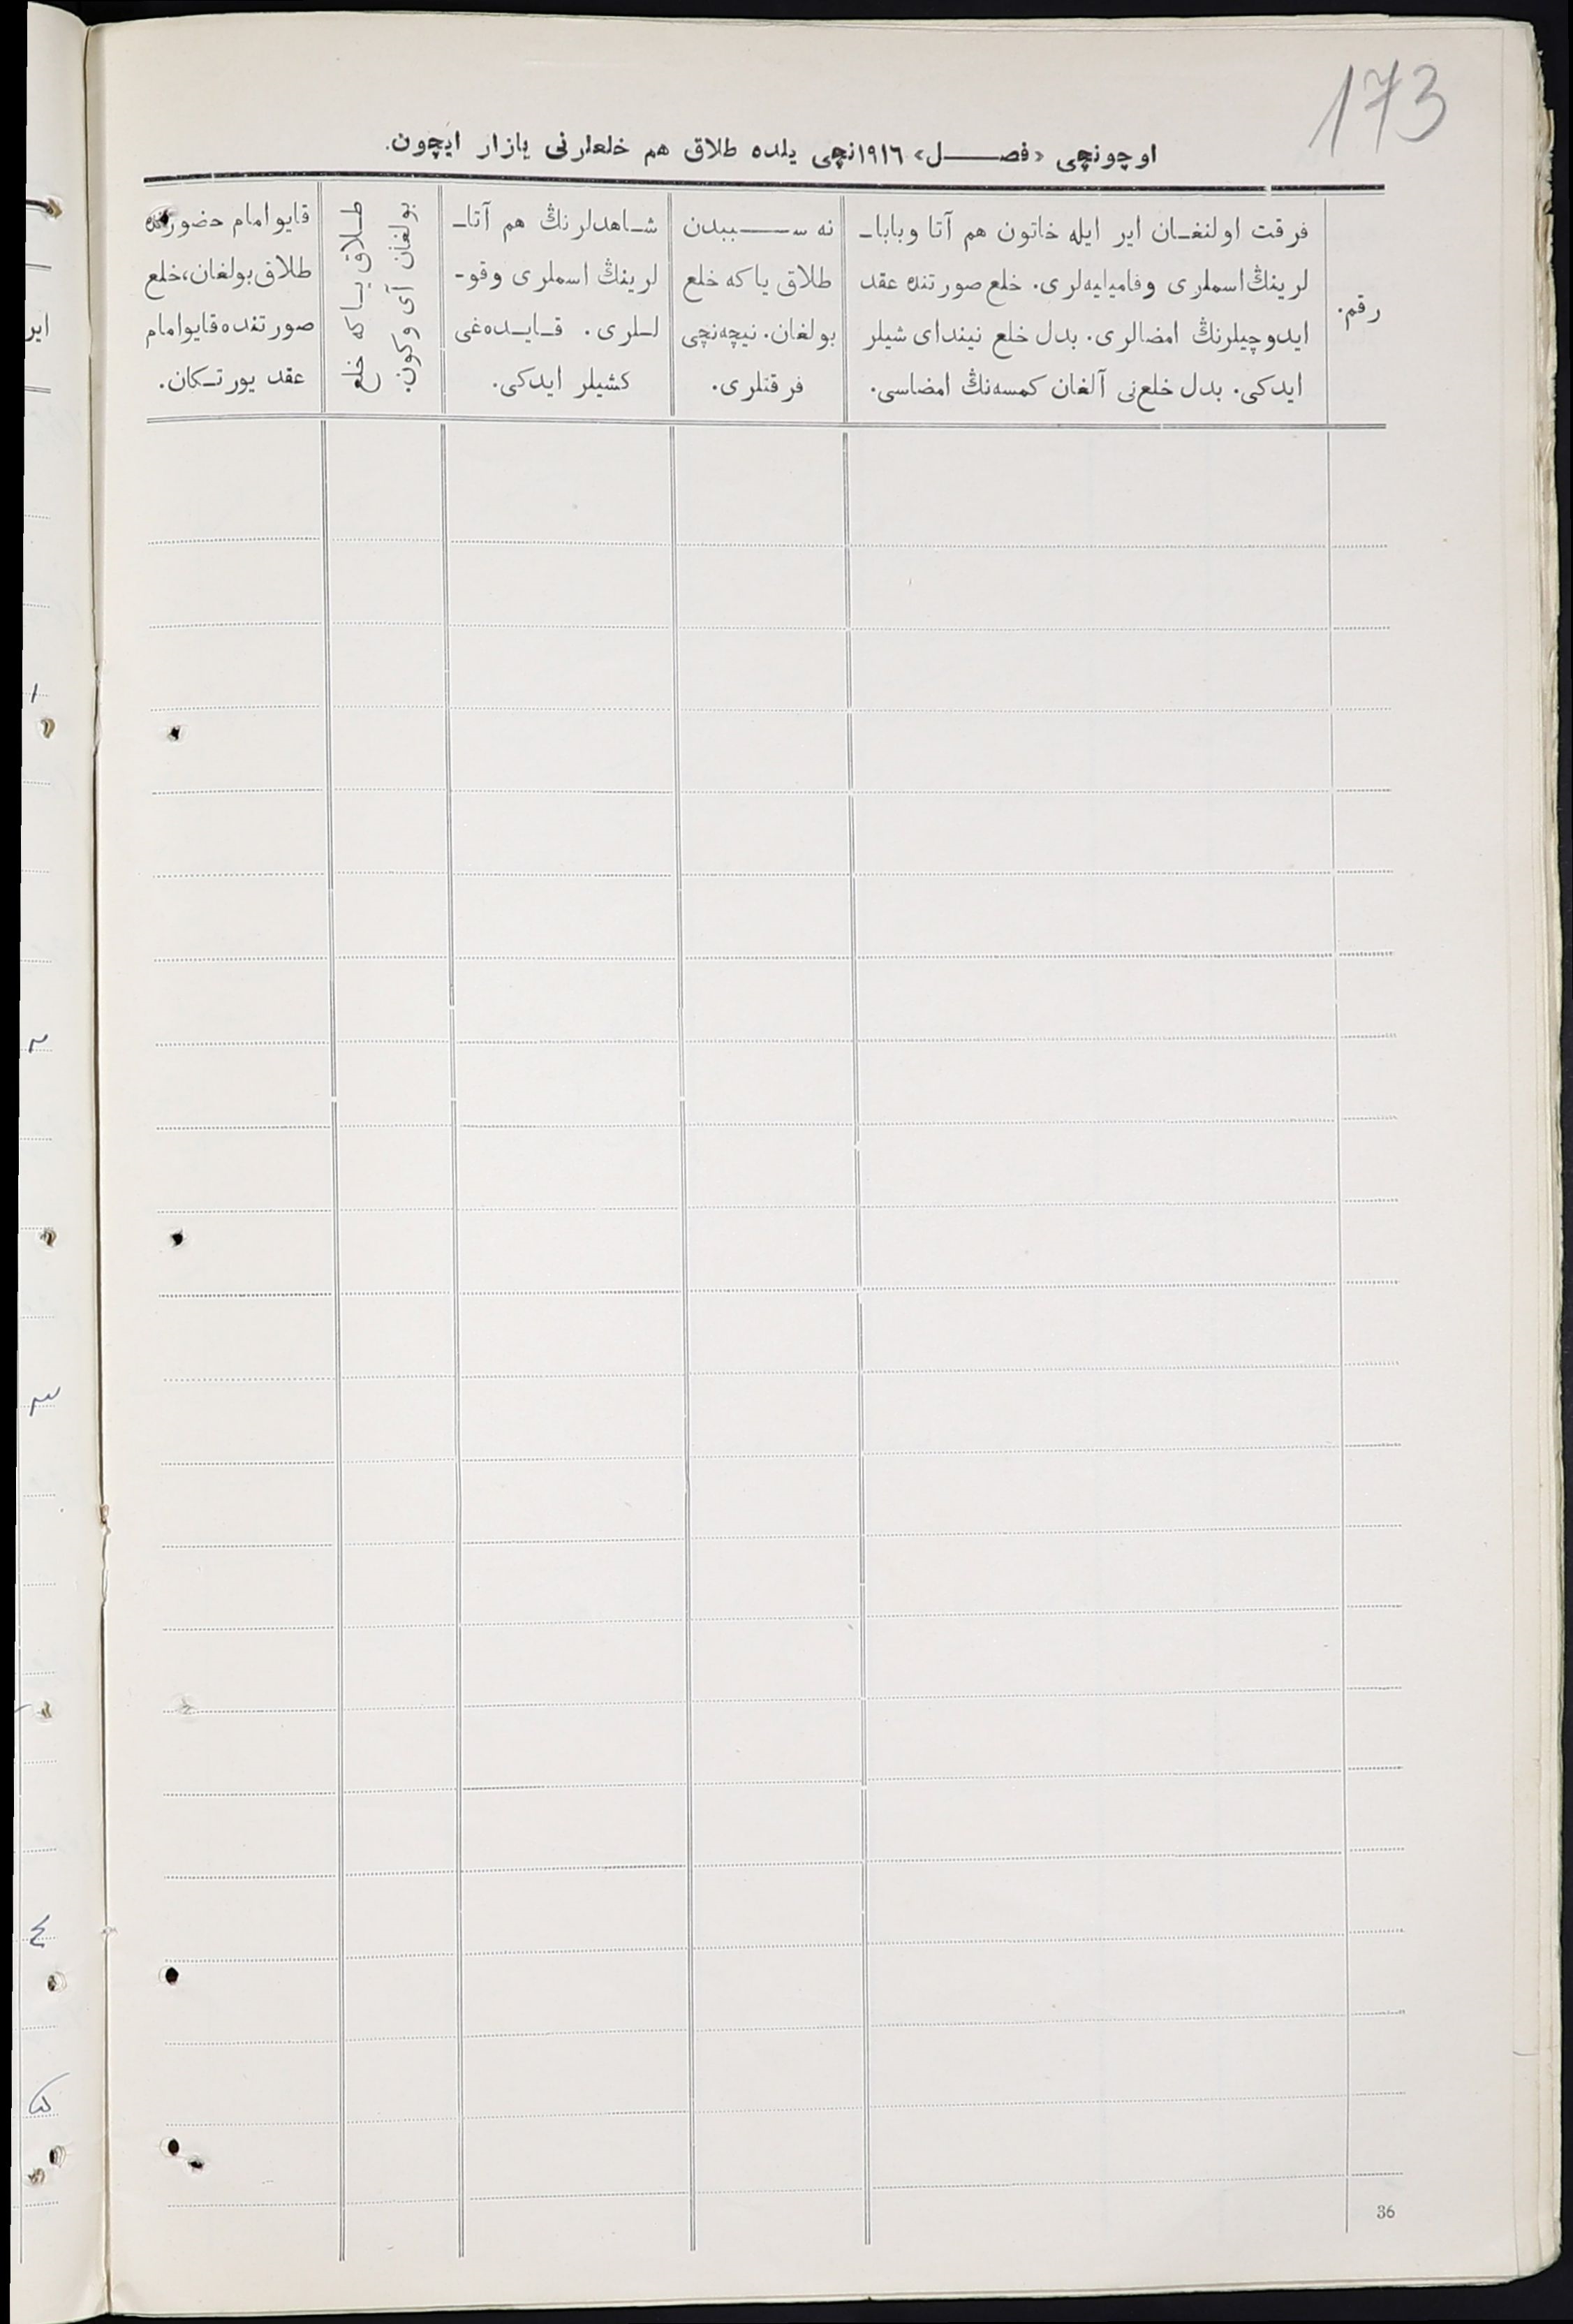 173
اوچونچی «فصل» ١٩١٦نچی یلده طلاق هم خلعلرنی یازار ایچون.
رقم.
فرقت اولنغان ایر ایله خاتون هم آتا وبابا-
لرینڭ اسملری وفامیلیه‌لری. خلع صورتنده عقد
ایدوچیلرنڭ امضالری. بدل خلع نیندای شیلر
ایدکی. بدل خلع‌نی آلغان کمسه‌نڭ امضاسی.
نه سببدن
طلاق یا که خلع
بولغان. نیچه‌نچی
فرقتلری.
شاهدلرنڭ هم آتا-
لرینڭ اسملری وقو-
للری. قایده‌غی
کشیلر ایدکی.
طلاق یا که خلع
بولغان آی وکون.
قایو امام حضورنده
طلاق بولغان، خلع
صورتنده قایو امام
عقد یورتکان.
ایر
١
٢
٣
٤
٥
36